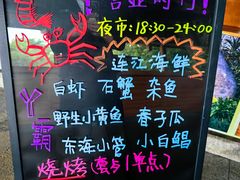 营业时间!
夜市:18:30-24:00
连江海鲜
白虾 石蟹 杂鱼
丫霸
野生小黄鱼 春子瓜
东海小管 小白鲳
烧烤(套与1单点)